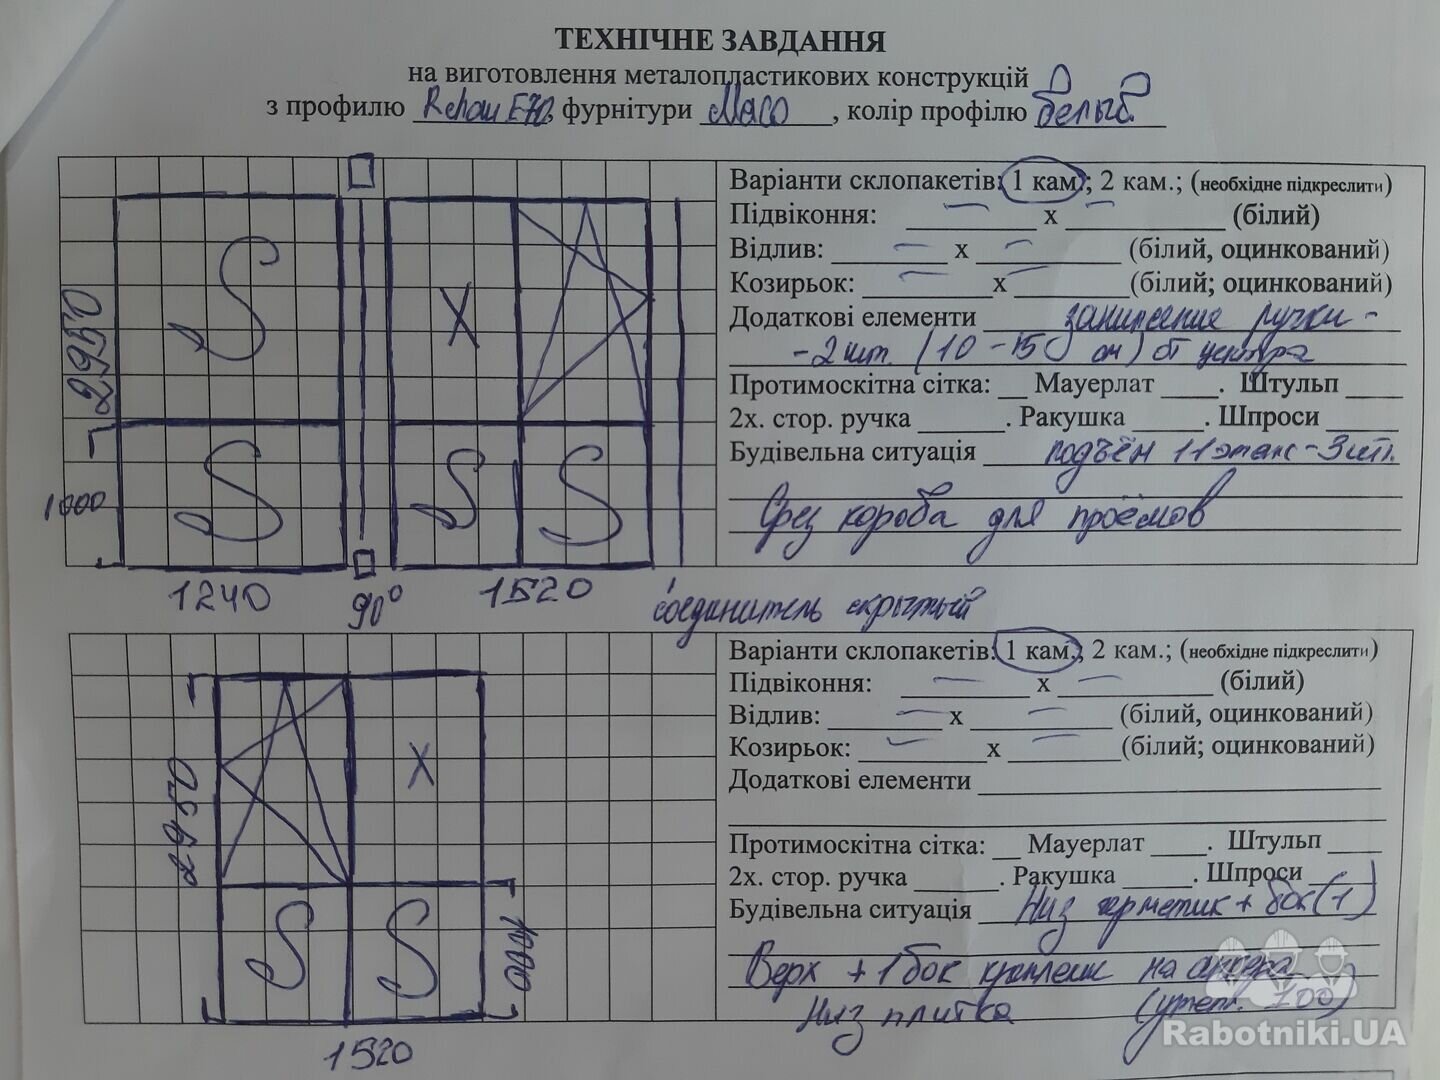 ТЕХНІЧНЕ ЗАВДАННЯ
на виготовлення металопластикових конструкцій
з профилю Rehau E70, фурнітури Maco, колір профілю белый
Варіанти склопакетів: 1 кам.; 2 кам.; (необхідне підкреслити)
Підвіконня: — х — (білий)
Відлив: — х — (білий, оцинкований)
Козирьок: — х — (білий; оцинкований)
Додаткові елементи занижение ручки -
- 2 шт. (10 - 15 см) от центра
Протимоскітна сітка: __ Мауерлат ____. Штульп ____
2х. стор. ручка ______. Ракушка _____. Шпроси _____
Будівельна ситуація подъём 11 этаж - 3 шт.
Срез короба для проёмов
S
X
S
S
S
2950
1000
1240
90°
1520
соединитель скрытый
Варіанти склопакетів: 1 кам.; 2 кам.; (необхідне підкреслити)
Підвіконня: — х — (білий)
Відлив: — х — (білий, оцинкований)
Козирьок: — х — (білий; оцинкований)
Додаткові елементи
Протимоскітна сітка: __ Мауерлат ____. Штульп ____
2х. стор. ручка ______. Ракушка _____. Шпроси _____
Будівельна ситуація Низ герметик + бок (1)
Верх + 1 бок крепление на анкера
Низ плитка (утепл. 100)
X
S
S
2950
1000
1520
Rabotniki.UA